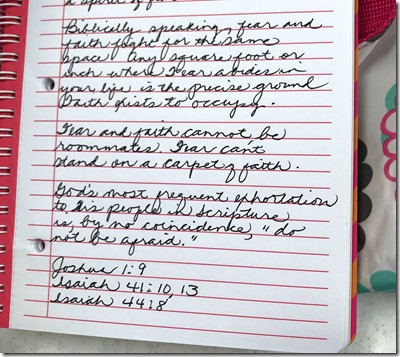 a spirit of
Biblically speaking, fear and
faith fight for the same
space. Any square foot or
inch where fear abides in
your life is the precise ground
Faith exists to occupy.
Fear and faith cannot be
roommates. Fear can't
stand on a carpet of faith.
God's most frequent exhortation
to His people in Scripture
is, by no coincidence, "do
not be afraid."
Joshua 1:9
Isaiah 41:10, 13
Isaiah 44:8